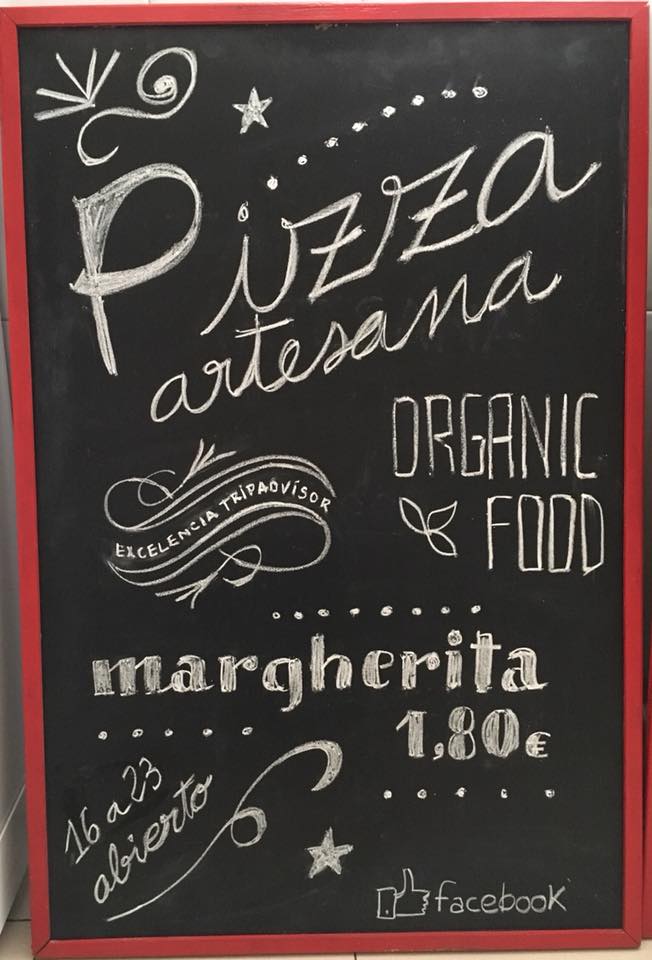 Pizza
artesana
ORGANIC
FOOD
EXCELENCIA TRIPADVISOR
margherita
1,80€
16 a 23
abierto
facebook